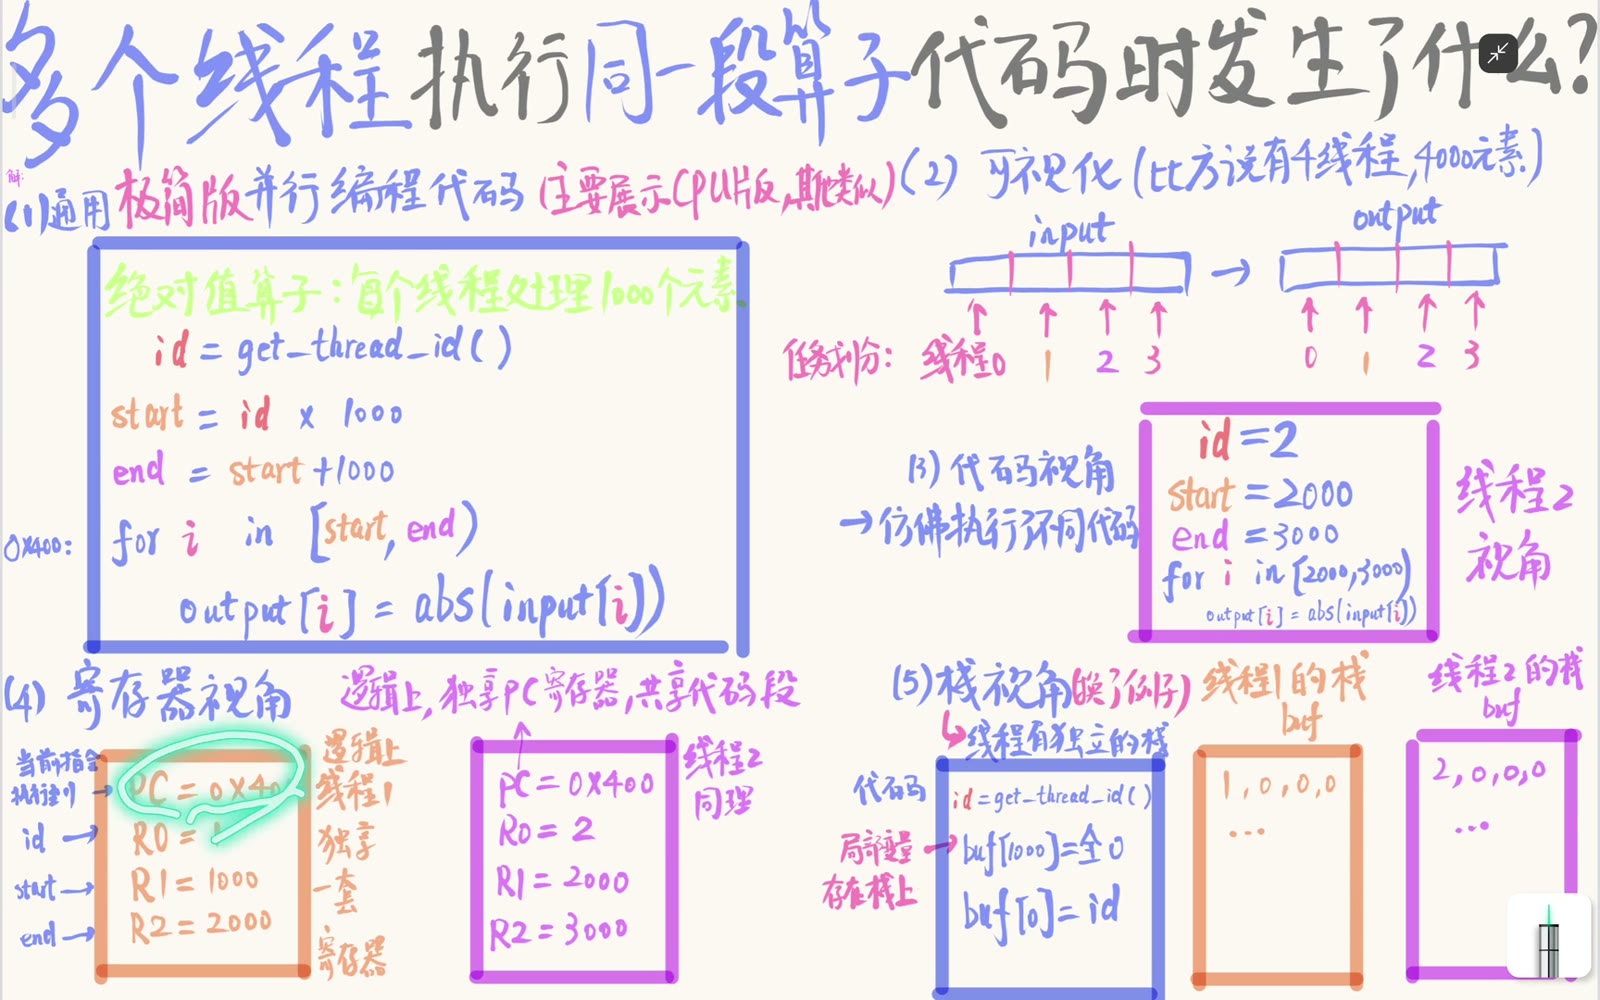 多个线程执行同一段算子代码时发生了什么?
解:
(1)通用极简版并行编程代码(主要展示CPU版,其他类似)
绝对值算子:每个线程处理1000个元素
id = get_thread_id()
start = id x 1000
end = start+1000
0x400:
for i in [start, end)
output[i] = abs(input[i])
(2) 可视化(比方说有4线程,4000元素)
input
output
任务划分: 线程0 1 2 3
0 1 2 3
(3) 代码视角
→仿佛执行了不同代码
id=2
start=2000
end=3000
for i in [2000,3000)
output[i] = abs(input[i])
线程2
视角
(4) 寄存器视角
逻辑上,独享PC寄存器,共享代码段
当前指令
执行到→
id→
start→
end→
PC = 0x40
R0 = 1
R1 = 1000
R2 = 2000
逻辑上
线程1
独享
一套
寄存器
PC = 0x400
R0 = 2
R1 = 2000
R2 = 3000
线程2
同理
(5)栈视角(换了例子)
线程有独立的栈
代码
id=get_thread_id()
局部变量→
存在栈上
buf[1000]=全0
buf[0]=id
线程1的栈
buf
1,0,0,0
...
线程2的栈
buf
2,0,0,0
...